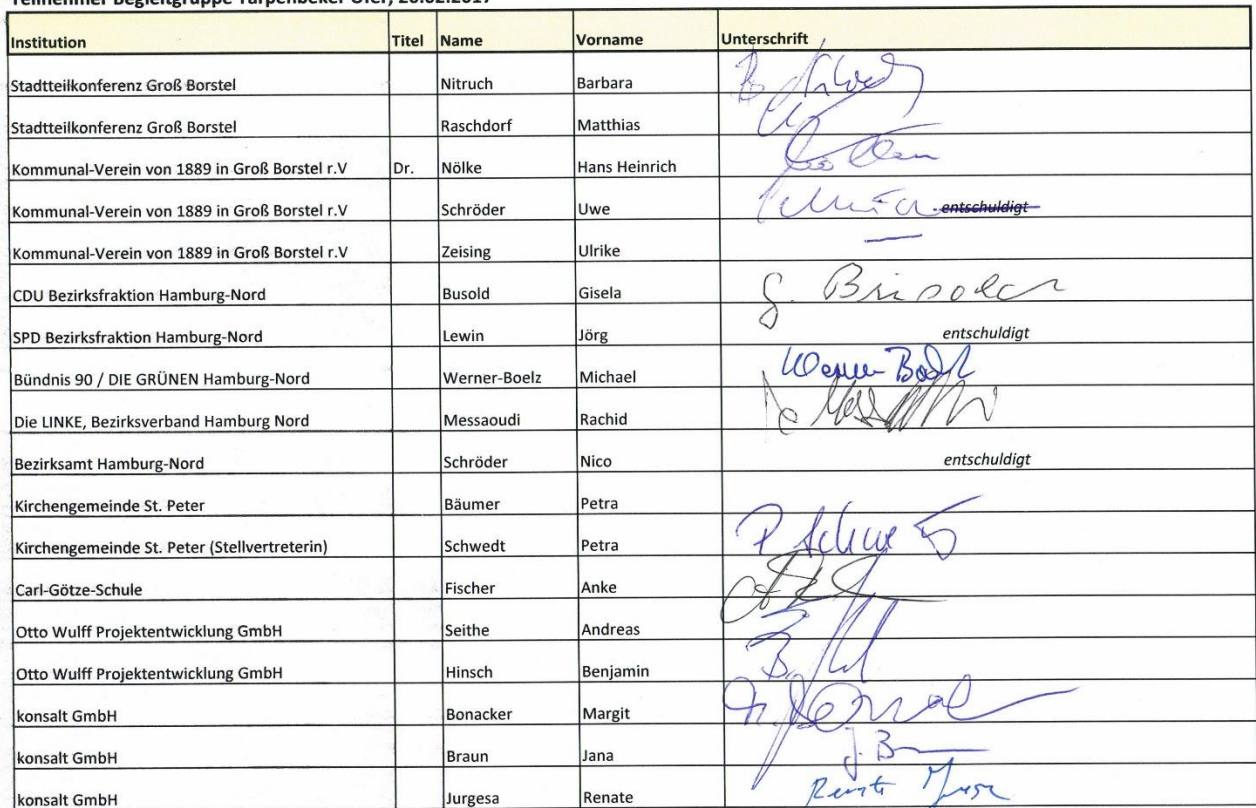 Teilnehmer Begleitgruppe Tarpenbeker Ufer, 20.02.2017
Institution Titel Name Vorname Unterschrift
Stadtteilkonferenz Groß Borstel Nitruch Barbara
Stadtteilkonferenz Groß Borstel Raschdorf Matthias
Kommunal-Verein von 1889 in Groß Borstel r.V Dr. Nölke Hans Heinrich
Kommunal-Verein von 1889 in Groß Borstel r.V Schröder Uwe entschuldigt
Kommunal-Verein von 1889 in Groß Borstel r.V Zeising Ulrike
CDU Bezirksfraktion Hamburg-Nord Busold Gisela G. Busold
SPD Bezirksfraktion Hamburg-Nord Lewin Jörg entschuldigt
Bündnis 90 / DIE GRÜNEN Hamburg-Nord Werner-Boelz Michael Werner-Boelz
Die LINKE, Bezirksverband Hamburg Nord Messaoudi Rachid
Bezirksamt Hamburg-Nord Schröder Nico entschuldigt
Kirchengemeinde St. Peter Bäumer Petra
Kirchengemeinde St. Peter (Stellvertreterin) Schwedt Petra P. Schwedt
Carl-Götze-Schule Fischer Anke
Otto Wulff Projektentwicklung GmbH Seithe Andreas
Otto Wulff Projektentwicklung GmbH Hinsch Benjamin
konsalt GmbH Bonacker Margit
konsalt GmbH Braun Jana J. B
konsalt GmbH Jurgesa Renate Renate